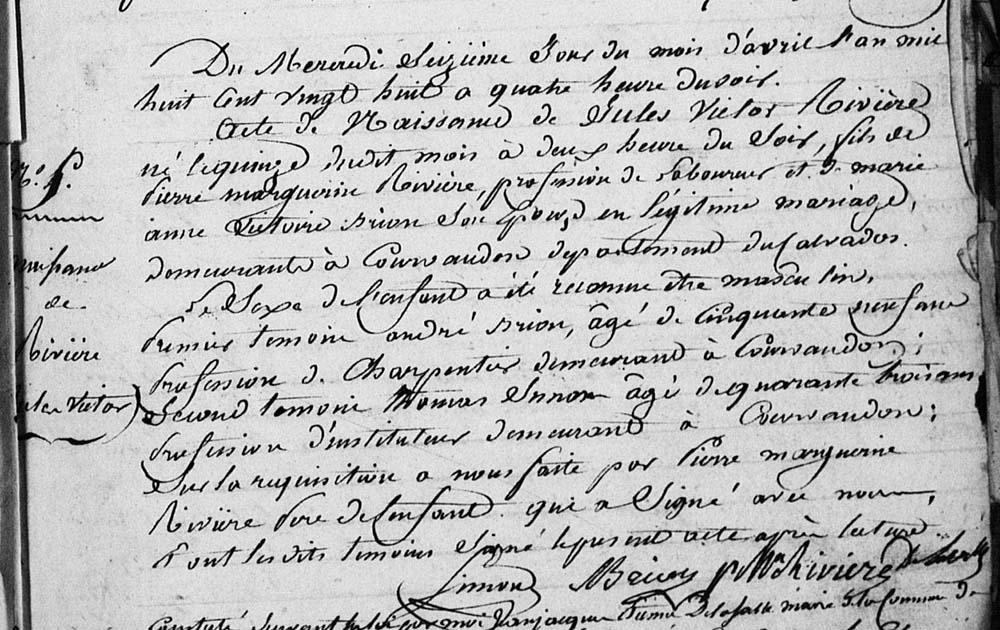 Du Mercredi Seizième Jour du mois d'avril l'an mil
huit Cent vingt huit a quatre heure du soir.
Acte de Naissance de Jules Victor Rivière
né le quinze dudit mois à deux heure du Soir, fils de
Pierre marguerine Rivière, profession de Laboureur et de marie
anne Victoire Brion Son Epouse en légitime mariage,
demeurants à Courvaudon departement du Calvados.
Le Sexe de l'enfant a été reconnu être masculin.
Premier temoin andré Brion, âgé de Cinquante neuf ans
Profession de Charpentier demeurant à Courvaudon;
Second temoin thomas Simon âgé de quarante trois ans
Profession d'instituteur demeurant à Courvaudon;
Sur la requisition a nous faite par Pierre marguerine
Rivière Pere de l'enfant qui a Signé avec nous,
Et ont lesdits temoins Signé le present acte après lecture
Simon PM Rivière
Constaté Suivant la loi par moi Jean jacques maire de la Commune de
de
Rivière
Victor